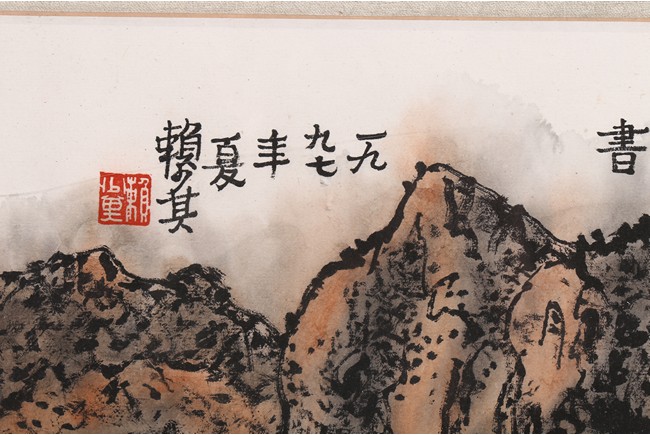 書
一九
九七
年
夏
賴少其
賴